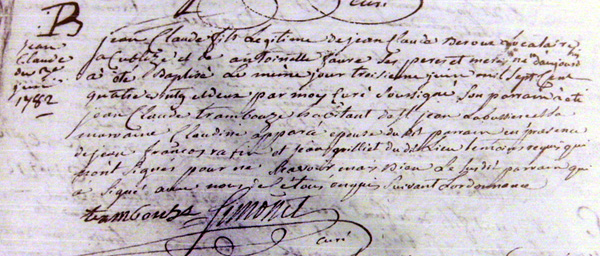 curé
B
jean
Claude
du 3e
juin
1782
jean Claude fils Legitime de jean Claude Locataire
a Cublize et de antoinette faure ses pere et mere né aujourd
a été Baptisé Le meme jour troisieme juin mil sept Cent
quatre vingt deux par moy Curé soussigné son parain a été
jean Claude trambouze habitant de St jean Labussiere et sa
maraine Claudine epouse du dt parain en presence
de jean francois et jean du dit lieu temoins requis qui
n'ont signés pour ne scavoir mais bien Le susdit parain qui
a signé avec nous de ce enquis suivant Lordonnance
trambouze Simonet
curé